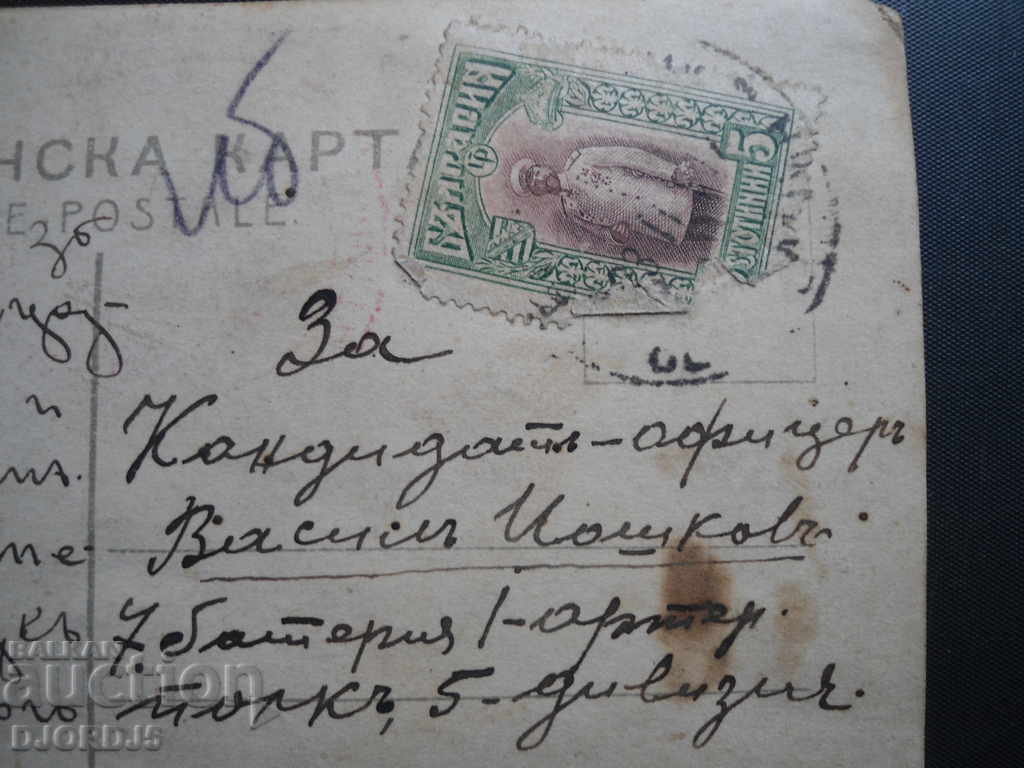 НСКА КАРТ
E POSTALE.
БЪЛГАРИЯ
5
СТОТИНКИ
За
и
Кандидатъ-офицеръ
Василъ Йошковъ.
ме-
7. батерия 1-артер.
къ
полкъ, 5-дивизия.
BALKAN
auction
DJORDJ5